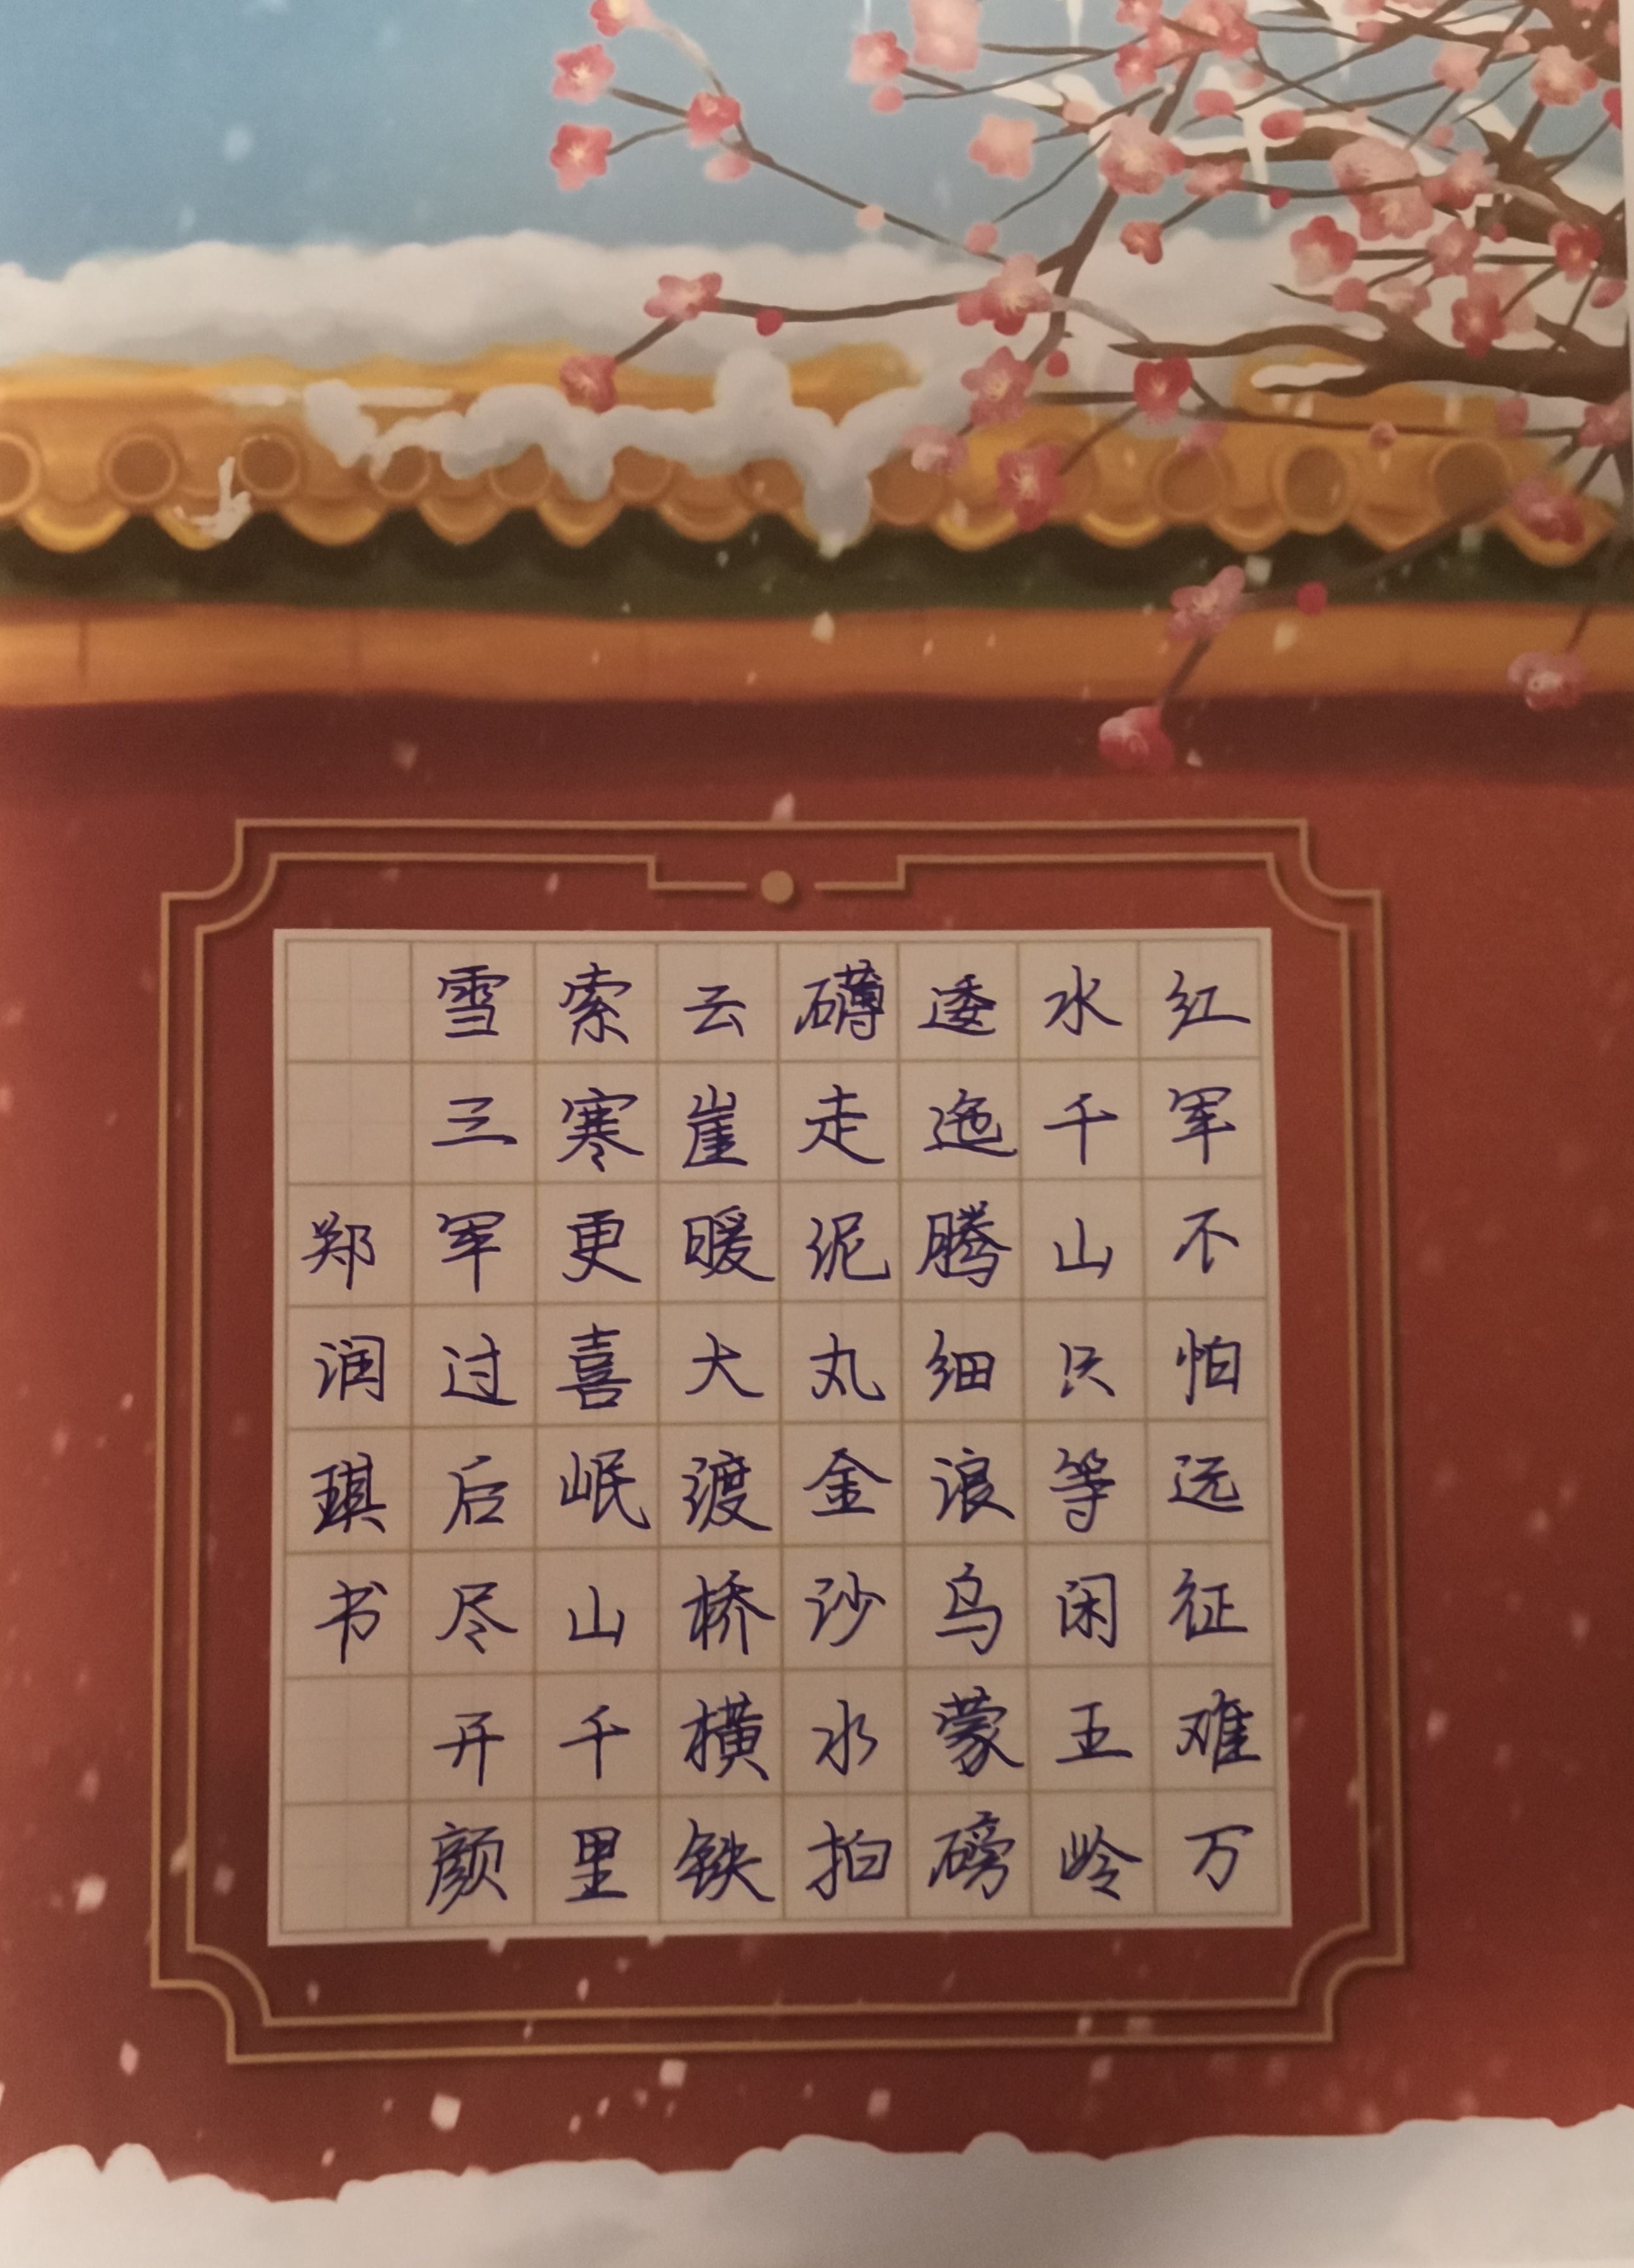 红军不怕远征难万
水千山只等闲五岭
逶迤腾细浪乌蒙磅
礴走泥丸金沙水拍
云崖暖大渡桥横铁
索寒更喜岷山千里
雪三军过后尽开颜
郑润琪书